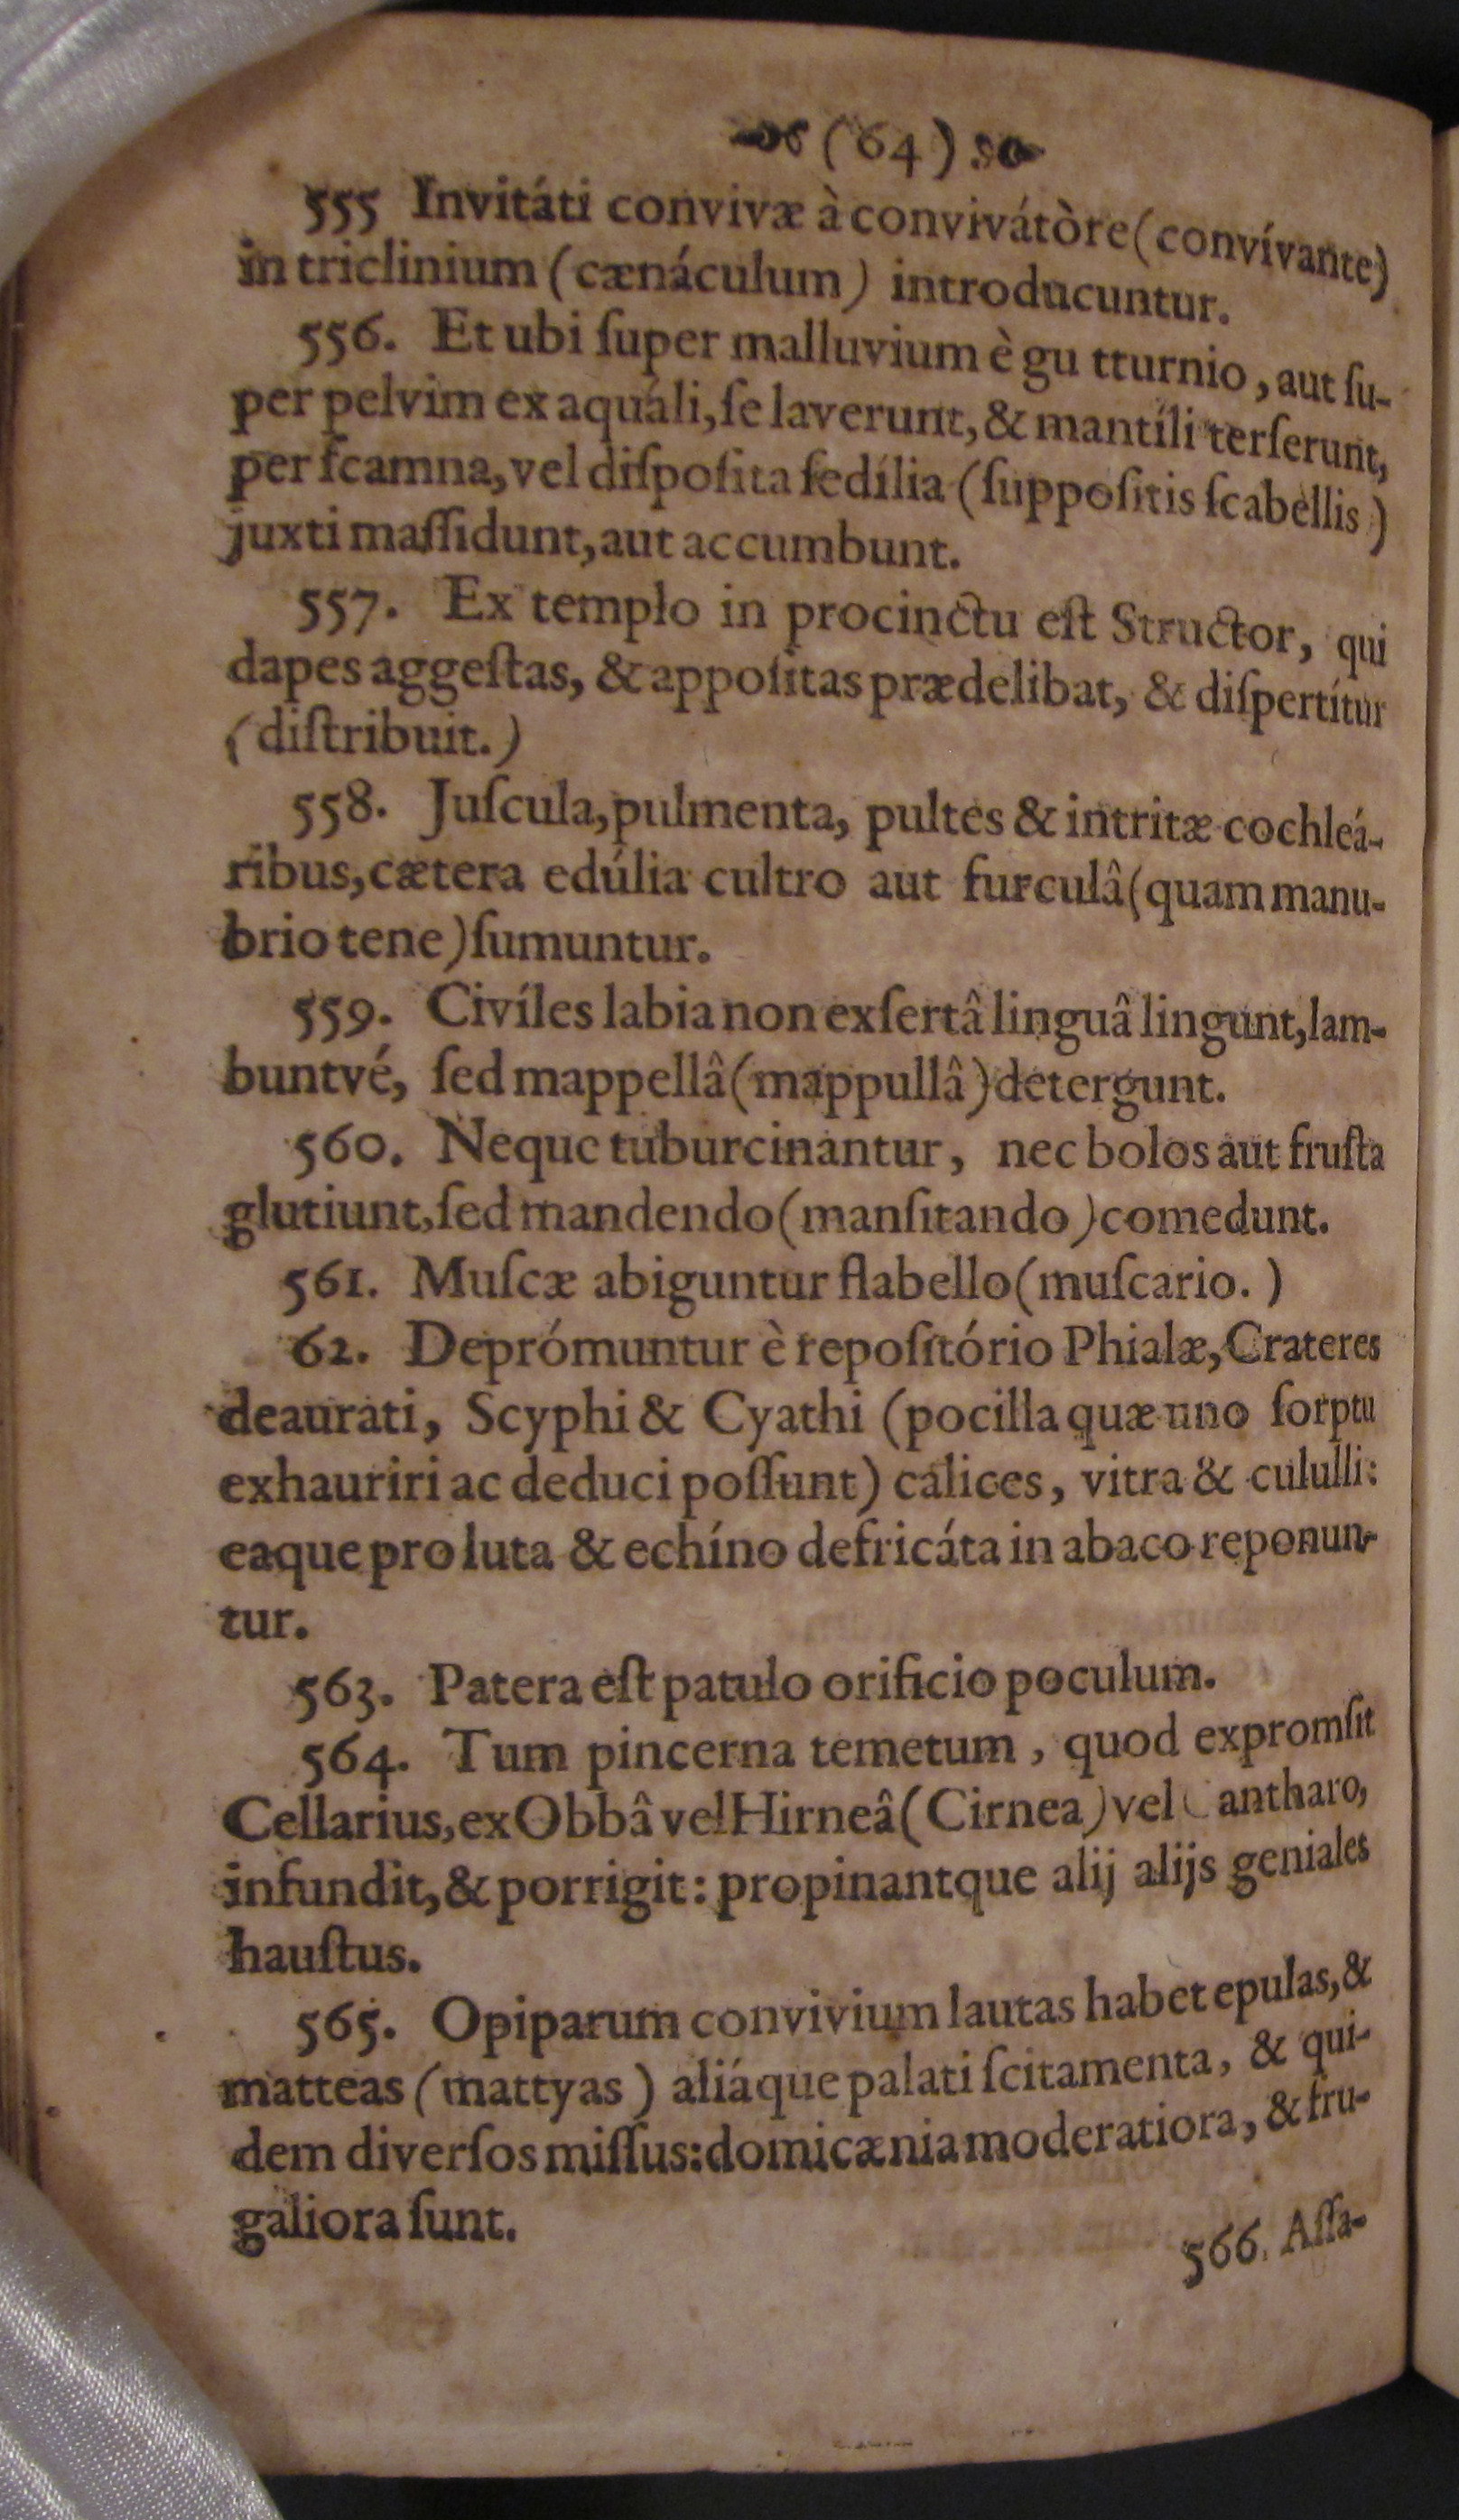 (64)
555 Invitáti convivæ à convivátòre (convívante)
in triclinium (cænáculum) introducuntur.
556. Et ubi ſuper malluvium è gu tturnio, aut ſu-
per pelvim ex aquáli, ſe laverunt, & mantíli terſerunt,
per ſcamna, vel diſpoſita ſedília (ſuppoſitis ſcabellis)
juxtim aſſidunt, aut accumbunt.
557. Ex templo in procinctu eſt Structor, qui
dapes aggeſtas, & appoſitas prædelibat, & diſpertítur
(diſtribuit.)
558. Juſcula, pulmenta, pultes & intritæ cochleá-
ribus, cætera edúlia cultro aut furculâ (quam manu-
brio tene) ſumuntur.
559. Civíles labia non exſertâ linguâ lingunt, lam-
buntvé, ſed mappellâ (mappullâ) detergunt.
560. Neque tuburcinantur, nec bolos aut fruſta
glutiunt, ſed mandendo (manſitando) comedunt.
561. Muſcæ abiguntur flabello (muſcario.)
62. Deprómuntur è repoſitório Phialæ, Crateres
deaurati, Scyphi & Cyathi (pocilla quæ uno ſorptu
exhauriri ac deduci poſſunt) calices, vitra & cululli:
eaque proluta & echíno defricáta in abaco reponun-
tur.
563. Patera eſt patulo orificio poculum.
564. Tum pincerna temetum, quod expromſit
Cellarius, ex Obbâ vel Hirneâ (Cirnea) vel Cantharo,
infundit, & porrigit: propinantque alij alijs geniales
hauſtus.
565. Opiparum convivium lautas habet epulas, &
matteas (mattyas) aliáque palati ſcitamenta, & qui-
dem diverſos miſſus: domicænia moderatiora, & fru-
galiora ſunt.
566. Aſſa-